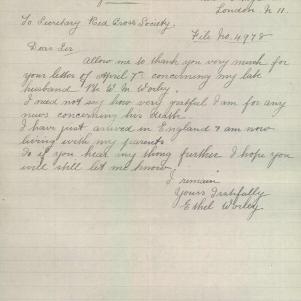 London N 11.
To Secretary Red Cross Society.
File No. 4978
Dear Sir
Allow me to thank you very much for
your letter of April 7th concerning my late
husband Pte W. M. Worley.
I need not say how very gratful I am for any
news concerning his death.
I have just arrived in England & am now
living with my parents.
So if you hear any thing further I hope you
will still let me know,
I remain
Yours Gratifully
Ethel Worley